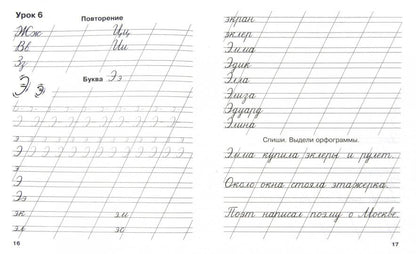 Урок 6
Повторение
Жж Цц
Вв Ии
Зз
Э э
Буква Ээ
Э
Э
э
э
Ээ
Ээ
эк эм
эл эс
16
экран
эклер
Эмма
Эдик
Элла
Элиза
Эдуард
Элина
Спиши. Выдели орфограммы.
Эмма купила эклеры и рулет.
Около окна стояла этажерка.
Поэт написал поэму о Москве.
17